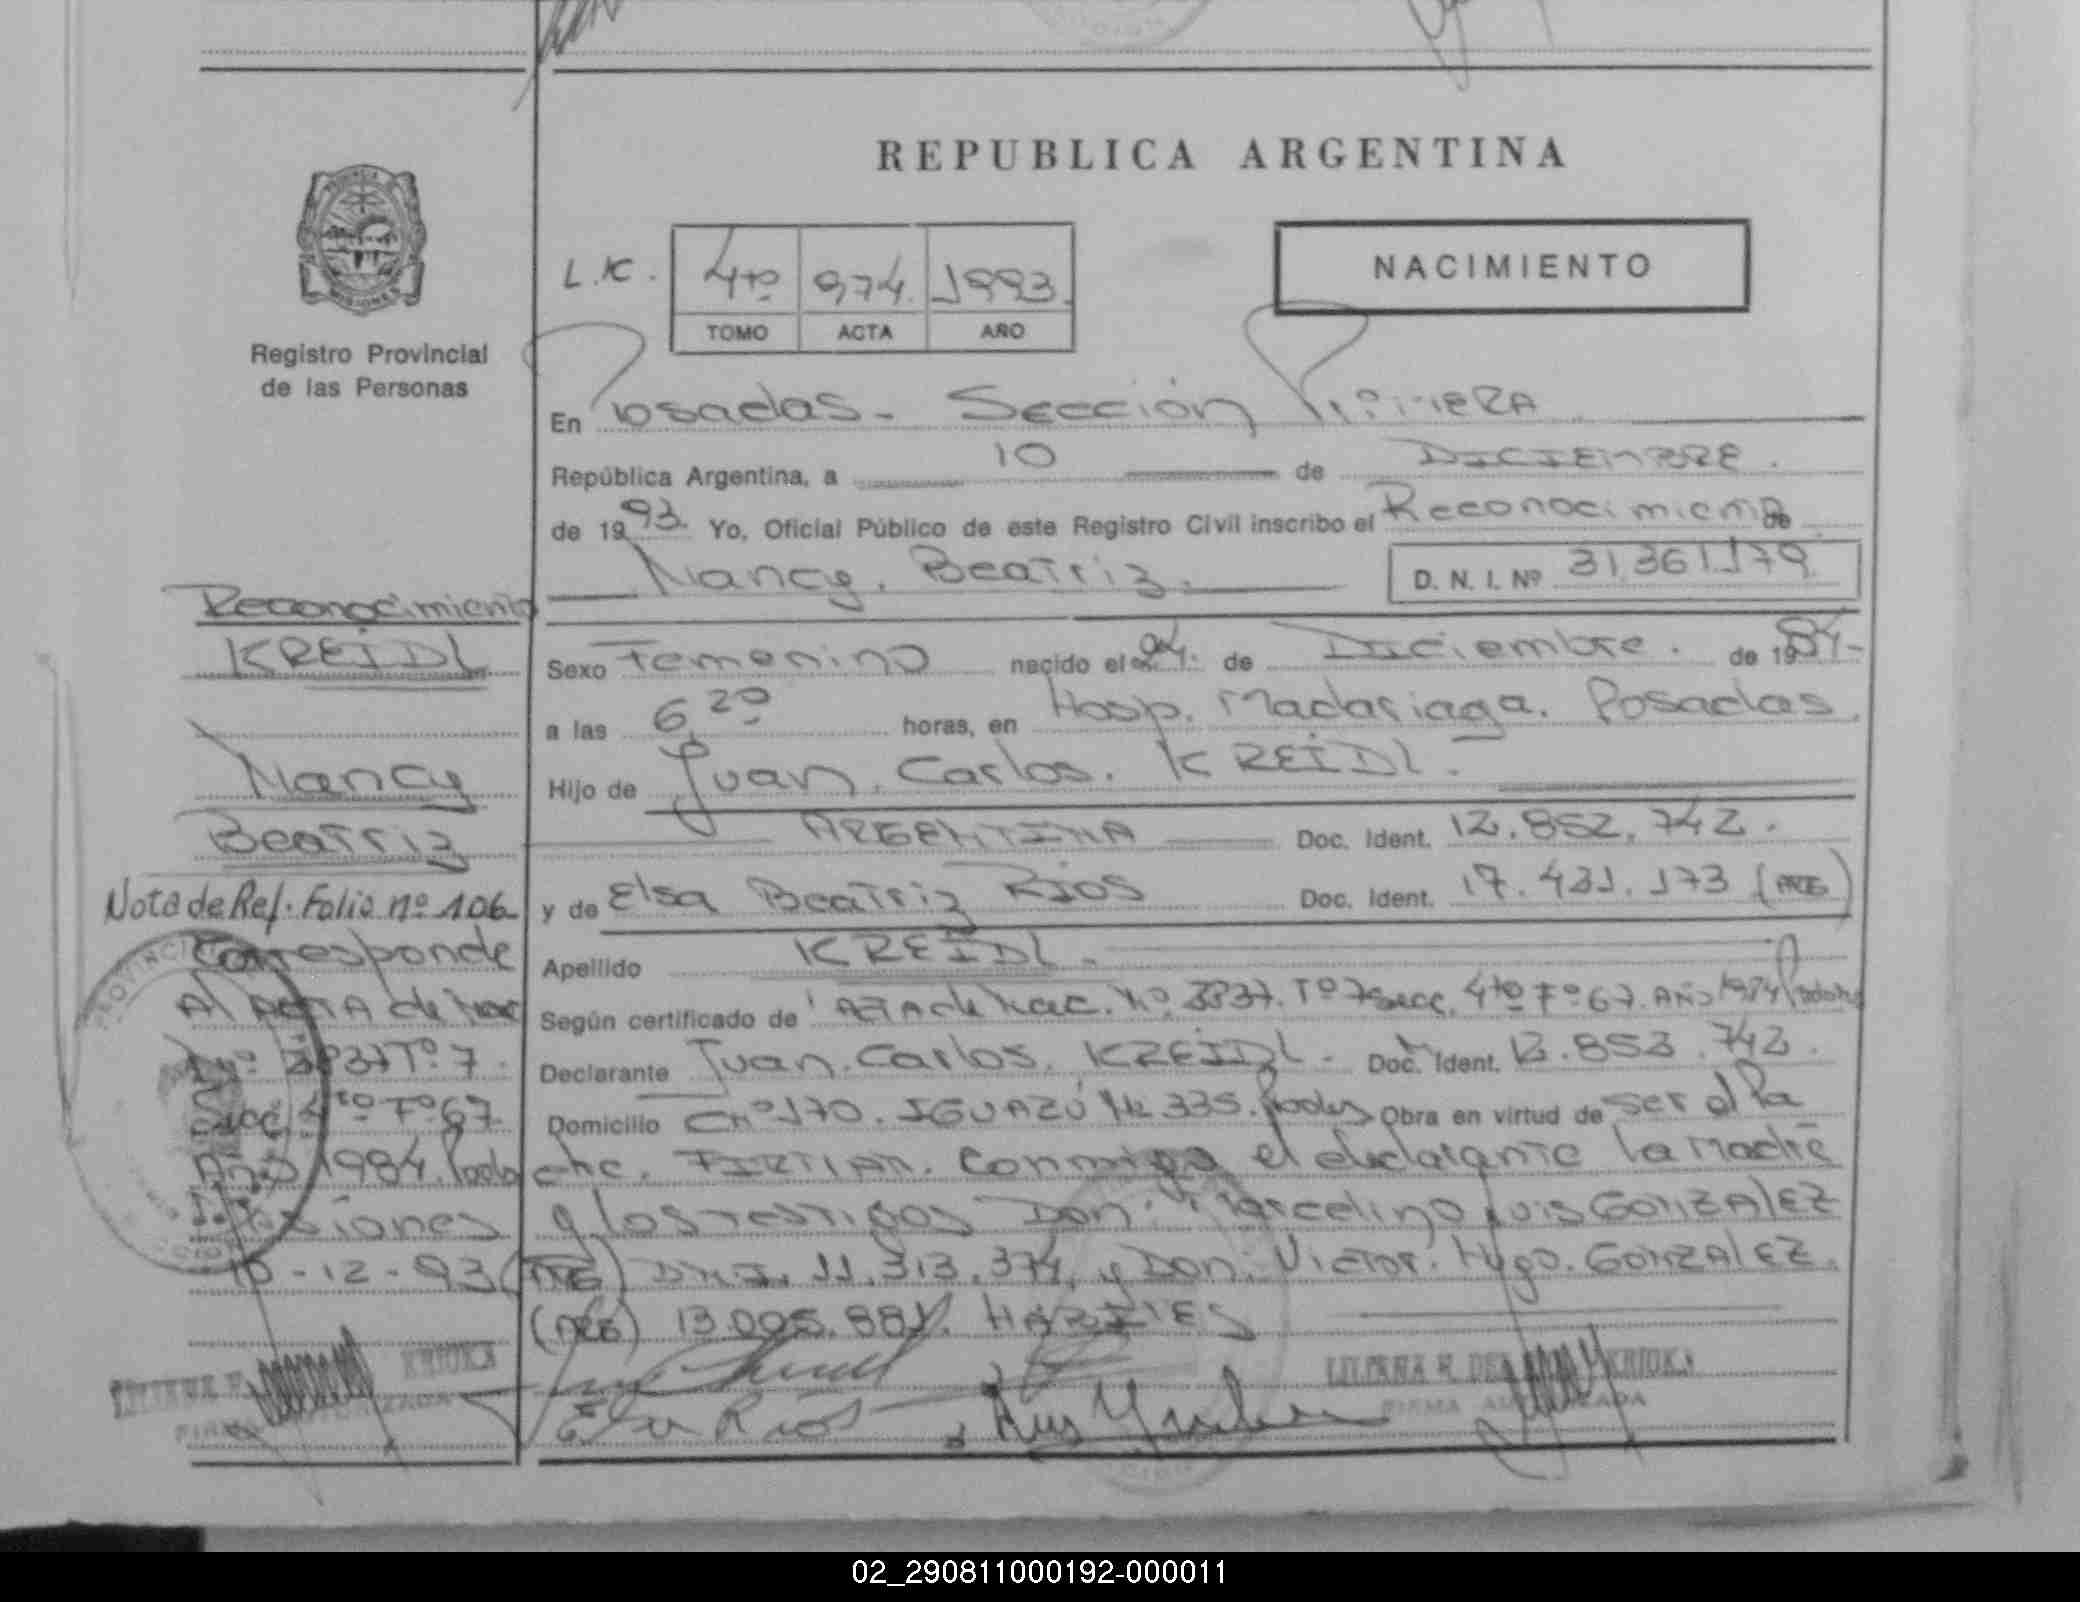 REPUBLICA ARGENTINA
NACIMIENTO
L.K. 4to 974. 1993.
TOMO ACTA AÑO
Registro Provincial
de las Personas
En Posadas - Sección Primera
República Argentina, a 10 de DICIEMBRE.
de 1993. Yo, Oficial Público de este Registro Civil inscribo el Reconocimiento de
Nancy. Beatriz. D. N. I. Nº 31.361.179.
Reconocimiento
KREIDL
Nancy
Beatriz
Nota de Ref. Folio nº 106
Corresponde
Al ACTA de Nac
Nº 3837 Tº 7.
Secc 4to Fº 67
Año 1984. Posadas
Misiones
10-12-93
Sexo Femenino nacido el 04. de Diciembre. de 1984-
a las 6,20 horas, en Hosp. Madariaga. Posadas.
Hijo de Juan. Carlos. KREIDL.
ARGENTINA Doc. Ident. 12.852.742.
y de Elsa Beatriz RIOS Doc. Ident. 17.431.173 (ARG)
Apellido KREIDL.
Según certificado de ACTA de Nac. Nº 3837. Tº 7 Secc. 4to Fº 67. Año 1984 Posadas
Declarante Juan. Carlos. KREIDL. Doc. Ident. 12.852.742.
Domicilio Ch º 170. IGUAZÚ 335. Posadas Obra en virtud de ser el Pa
dre. FIRMAN. Conmigo el declarante la Madre
y los testigos Don: Marcelino Luis GONZALEZ
(ARG) D.N.I. 11.313.374, y Don. Victor. Hugo. GONZALEZ.
(ARG) 13.005.881. HABILES
Elsa Rios
LILIANA R. KRIOKA
FIRMA AUTORIZADA
LILIANA R. DE KRIOKA
FIRMA AUTORIZADA
02_290811000192-000011